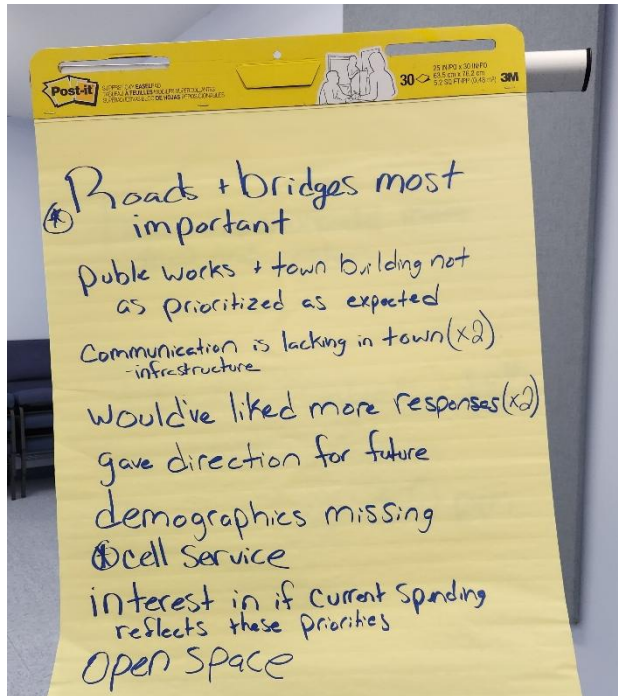 Post-it
30
25 IN/PO x 30 IN/PO
63,5 cm x 76,2 cm
3M
* Roads + bridges most
important
Public works + town building not
as prioritized as expected
Communication is lacking in town (x2)
-infrastructure
would've liked more responses (x2)
gave direction for future
demographics missing
* cell service
interest in if current spending
reflects these priorities
open space